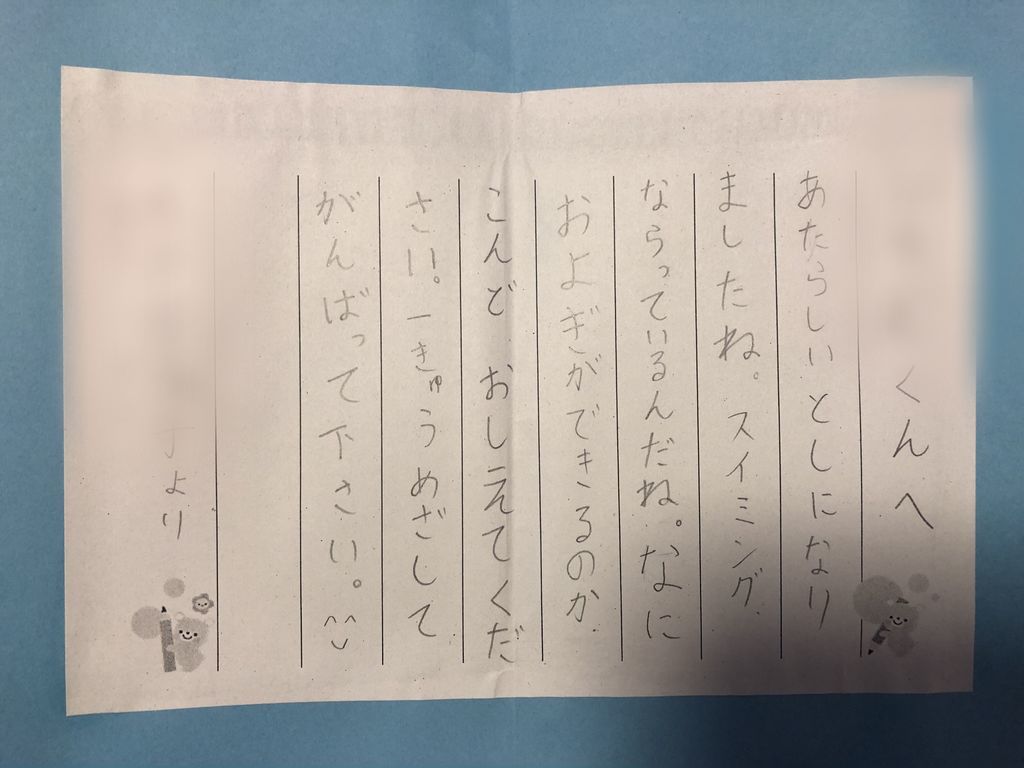 くんへ
あたらしいとしになり
ましたね。スイミング
ならっているんだね。なに
およぎができるのか
こんど おしえてくだ
さい。一きゅうめざして
がんばって下さい。^^
より